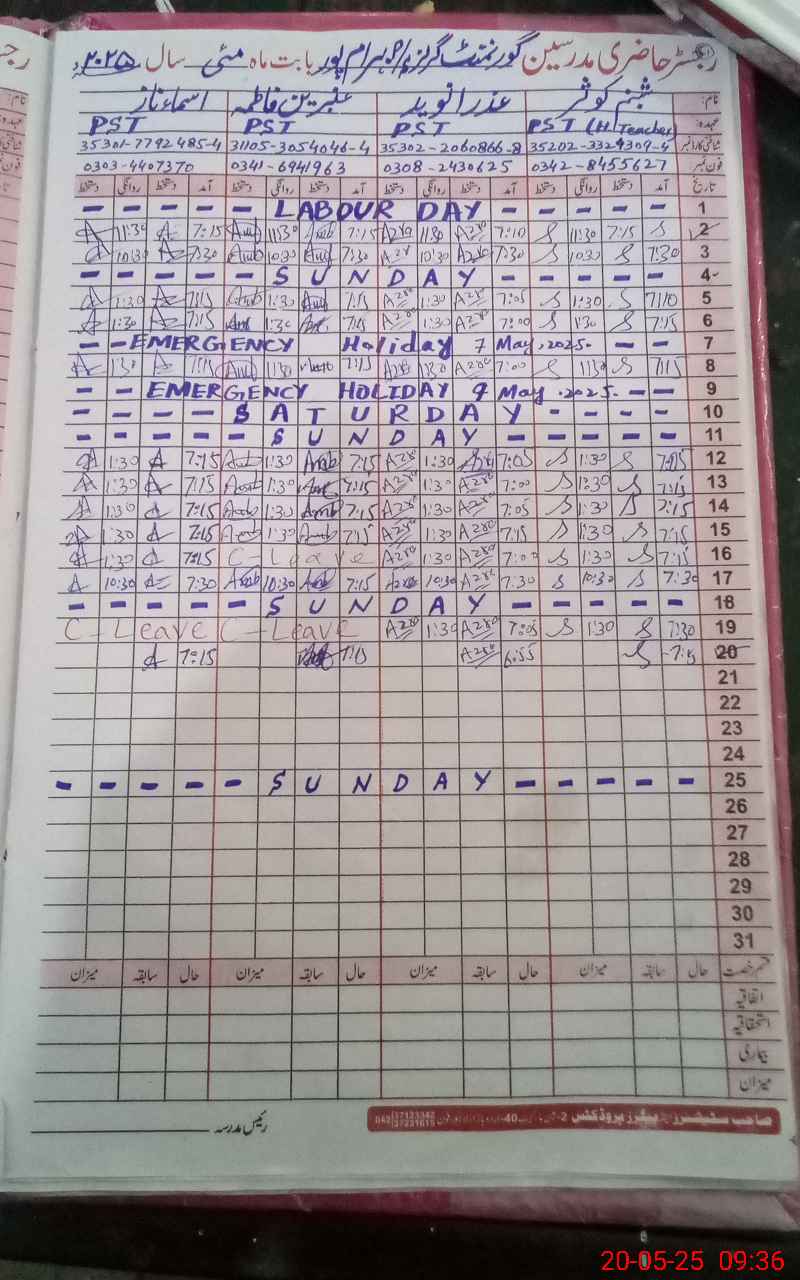 رجسٹر حاضری مدرسین گورنمنٹ گرلز p/s بہرام پور بابت ماہ مئی سال ۲۰۲۵ء
نام: شبنم کوثر عذرا نوید عنبرین فاطمہ اسماء ناز
عہدہ: PST (H/Teacher) PST PST PST
شناختی کارڈ نمبر 35202-3324309-4 35302-2060866-8 31105-3054046-4 35301-7792485-4
فون نمبر 0342-8455627 0308-2430625 0341-6941963 0303-4407370
تاریخ آمد دستخط روانگی دستخط آمد دستخط روانگی دستخط آمد دستخط روانگی دستخط آمد دستخط روانگی دستخط
- - - - - LABOUR DAY - - - - - 1
11:30 7:15 11:30 7:15 11:30 7:10 11:30 7:15 2
10:30 7:30 10:30 7:30 10:30 7:30 10:30 7:30 3
- - - - - SUNDAY - - - - - 4
1:30 7:15 1:30 7:15 1:30 7:05 1:30 7:10 5
1:30 7:15 1:30 7:15 1:30 7:00 1:30 7:15 6
- - EMERGENCY Holiday 7 May.2025. - - 7
1:30 7:15 1:30 7:00 7:15 8
- - EMERGENCY HOLIDAY 9 May.2025. - - 9
- - - - SATURDAY - - - - 10
- - - - - SUNDAY - - - - - 11
1:30 7:15 1:30 7:15 1:30 7:05 1:30 7:15 12
1:30 7:15 1:30 7:15 1:30 7:00 1:30 7:15 13
1:30 7:15 1:30 7:15 1:30 7:05 1:30 7:15 14
1:30 7:15 1:30 7:15 1:30 7:15 1:30 7:15 15
1:30 7:15 C-Leave 1:30 7:00 1:30 7:15 16
10:30 7:30 10:30 7:15 10:30 7:30 10:30 7:30 17
- - - - - SUNDAY - - - - - 18
C-Leave C-Leave 1:30 7:05 1:30 7:30 19
7:15 7:15 6:55 7:15 20
21
22
23
24
- - - - - SUNDAY - - - - - 25
26
27
28
29
30
31
قسم رخصت حال سابقہ میزان حال سابقہ میزان حال سابقہ میزان حال سابقہ میزان
اتفاقیہ
استحقاقیہ
بیماری
میزان
رئیس مدرسہ
صاحب سٹیشنرز پیپرز پروڈکٹس
20-05-25 09:36